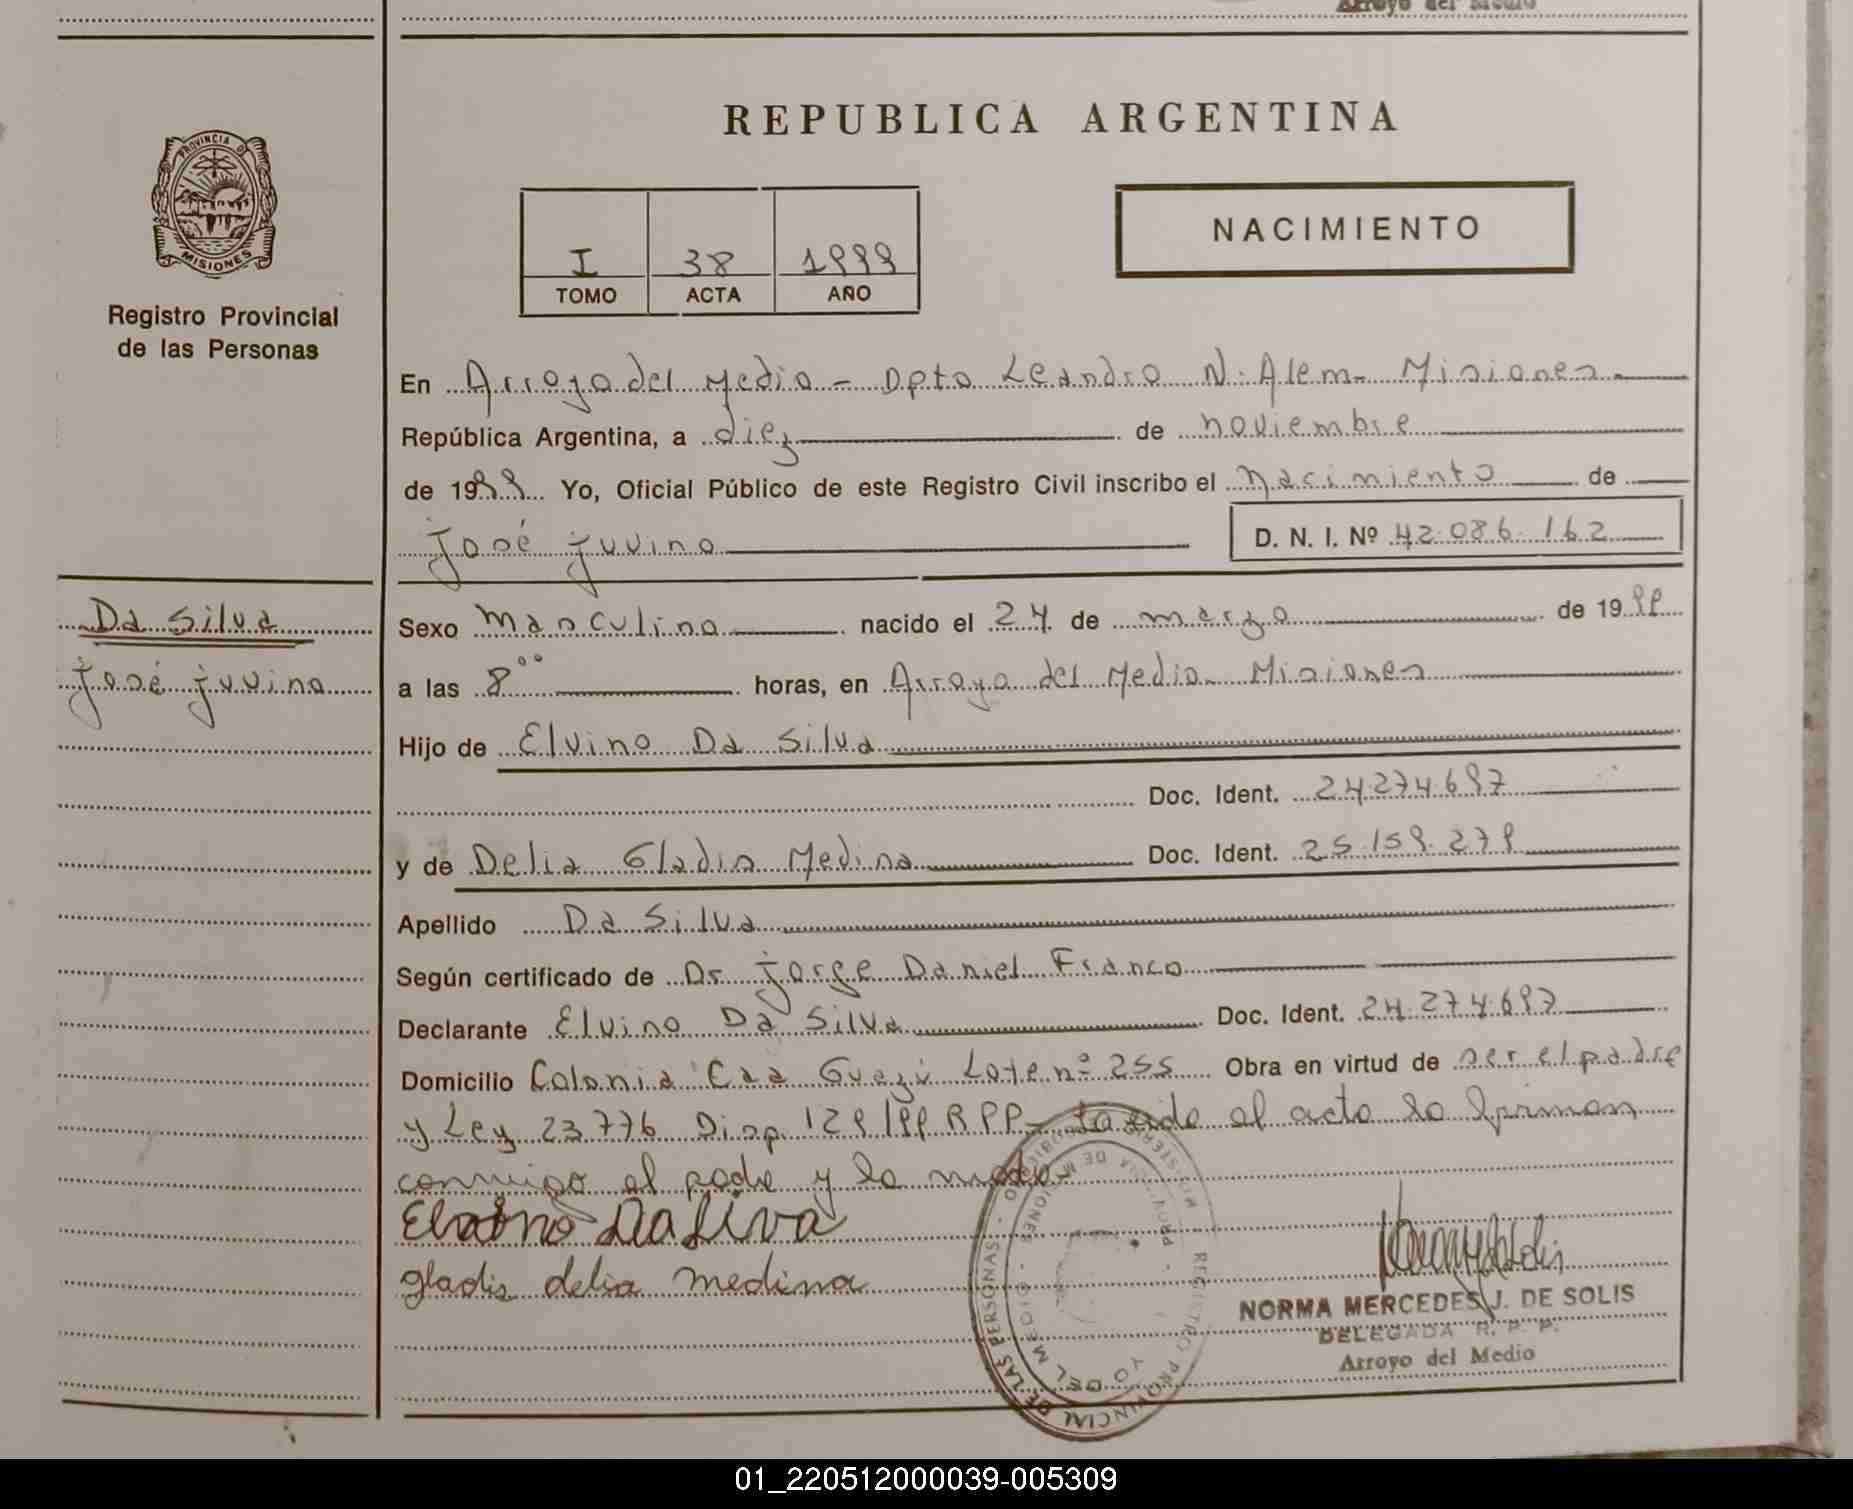 Arroyo del Medio
REPUBLICA ARGENTINA
PROVINCIA DE
MISIONES
Registro Provincial
de las Personas
NACIMIENTO
I 38 1999
TOMO ACTA AÑO
En Arroyo del Medio - Dpto Leandro N. Alem - Misiones
República Argentina, a diez de noviembre
de 1999 Yo, Oficial Público de este Registro Civil inscribo el nacimiento de
José juvino D. N. I. Nº 42.086.162
Da Silva
José juvino
Sexo Masculino nacido el 24 de marzo de 1999
a las 8°° horas, en Arroyo del Medio - Misiones
Hijo de Elvino Da Silva
Doc. Ident. 24.274.697
y de Delia Gladis Medina Doc. Ident. 25.159.279
Apellido Da Silva
Según certificado de Dr. jorge Daniel Franco
Declarante Elvino Da Silva Doc. Ident. 24.274.697
Domicilio Colonia Caa Guazú Lote nº 255 Obra en virtud de ser el padre
y Ley 23776 Disp. 129/99 RPP - el acto lo firman
conmigo el padre y la madre
Da Silva
gladis delia medina
REGISTRO PROVINCIAL DE LAS PERSONAS
NORMA MERCEDES J. DE SOLIS
DELEGADA R. P. P.
Arroyo del Medio
01_220512000039-005309